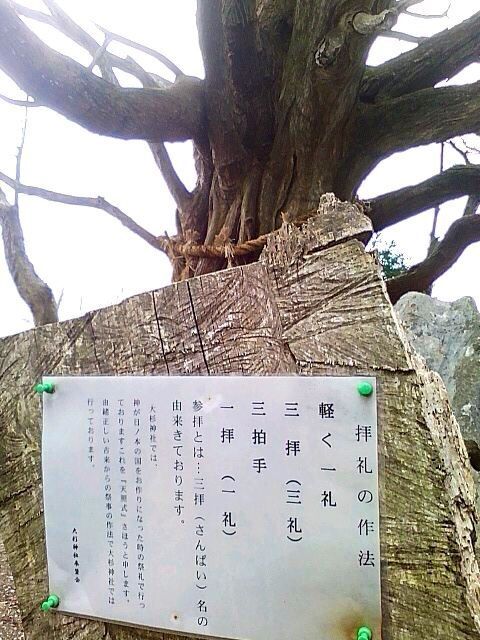 拝礼の作法
軽く一礼
三 拝 （三礼）
三拍手
一 拝 （一礼）
参拝とは…三拝（さんぱい）名の
由来きております。
大杉神社では、
神が日ノ本の国をお作りになった時の祭礼で行っ
ておりますこれを『天照式』さほうと申します。
由緒正しい古来からの祭事の作法で大杉神社では
行っております。
大杉神社奉賛会